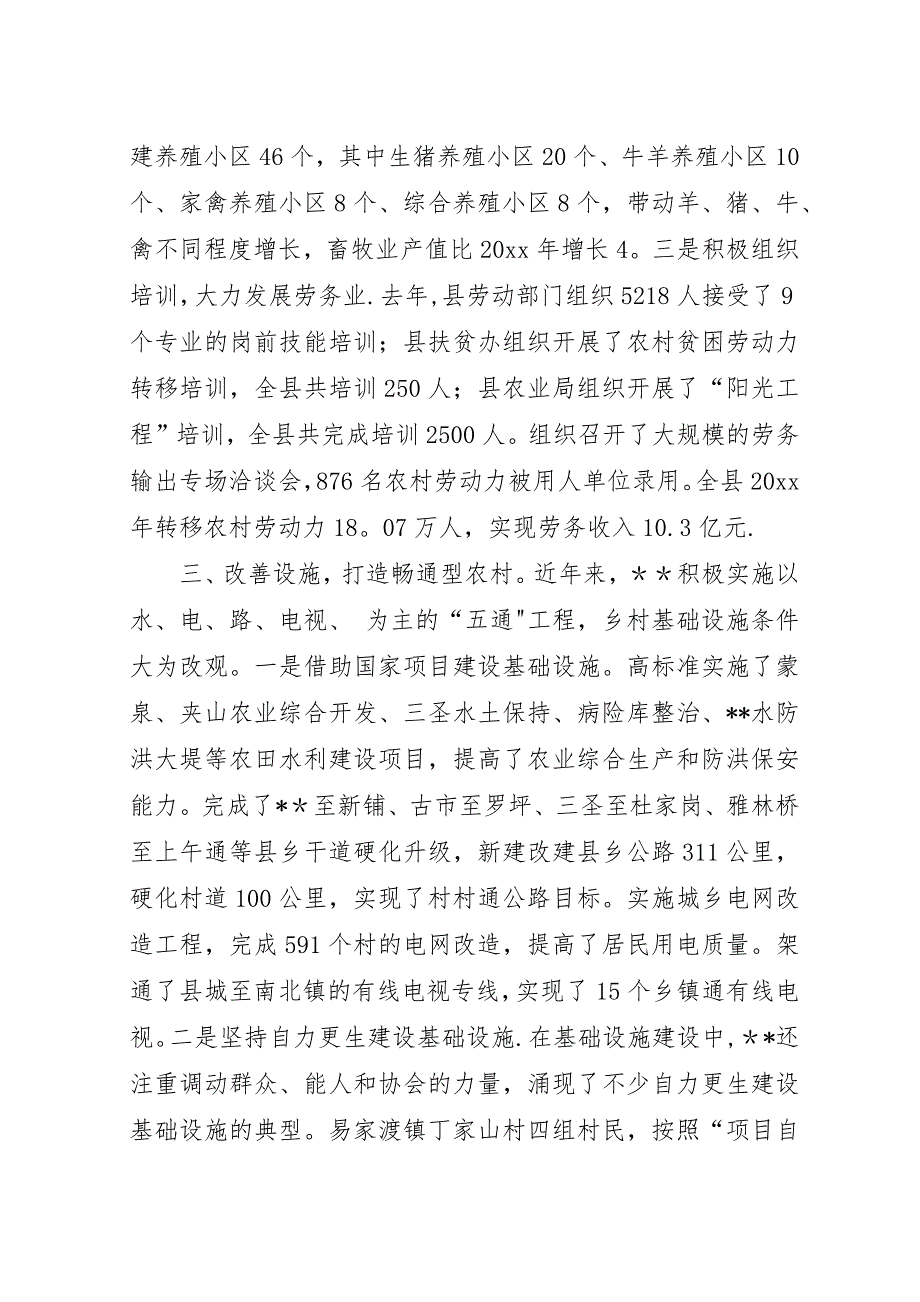 建养殖小区 46 个，其中生猪养殖小区 20 个、牛羊养殖小区 10
个、家禽养殖小区 8 个、综合养殖小区 8 个，带动羊、猪、牛、
禽不同程度增长，畜牧业产值比 20xx 年增长 4。三是积极组织
培训，大力发展劳务业.去年,县劳动部门组织 5218 人接受了 9
个专业的岗前技能培训；县扶贫办组织开展了农村贫困劳动力
转移培训，全县共培训 250 人；县农业局组织开展了“阳光工
程”培训，全县共完成培训 2500 人。组织召开了大规模的劳务
输出专场洽谈会，876 名农村劳动力被用人单位录用。全县 20xx
年转移农村劳动力 18。07 万人，实现劳务收入 10.3 亿元.
三、改善设施，打造畅通型农村。近年来，＊＊积极实施以
水、电、路、电视、 为主的“五通"工程，乡村基础设施条件
大为改观。一是借助国家项目建设基础设施。高标准实施了蒙
泉、夹山农业综合开发、三圣水土保持、病险库整治、**水防
洪大堤等农田水利建设项目，提高了农业综合生产和防洪保安
能力。完成了*＊至新铺、古市至罗坪、三圣至杜家岗、雅林桥
至上午通等县乡干道硬化升级，新建改建县乡公路 311 公里，
硬化村道 100 公里，实现了村村通公路目标。实施城乡电网改
造工程，完成 591 个村的电网改造，提高了居民用电质量。架
通了县城至南北镇的有线电视专线，实现了 15 个乡镇通有线电
视。二是坚持自力更生建设基础设施.在基础设施建设中,＊*还
注重调动群众、能人和协会的力量，涌现了不少自力更生建设
基础设施的典型。易家渡镇丁家山村四组村民，按照“项目自